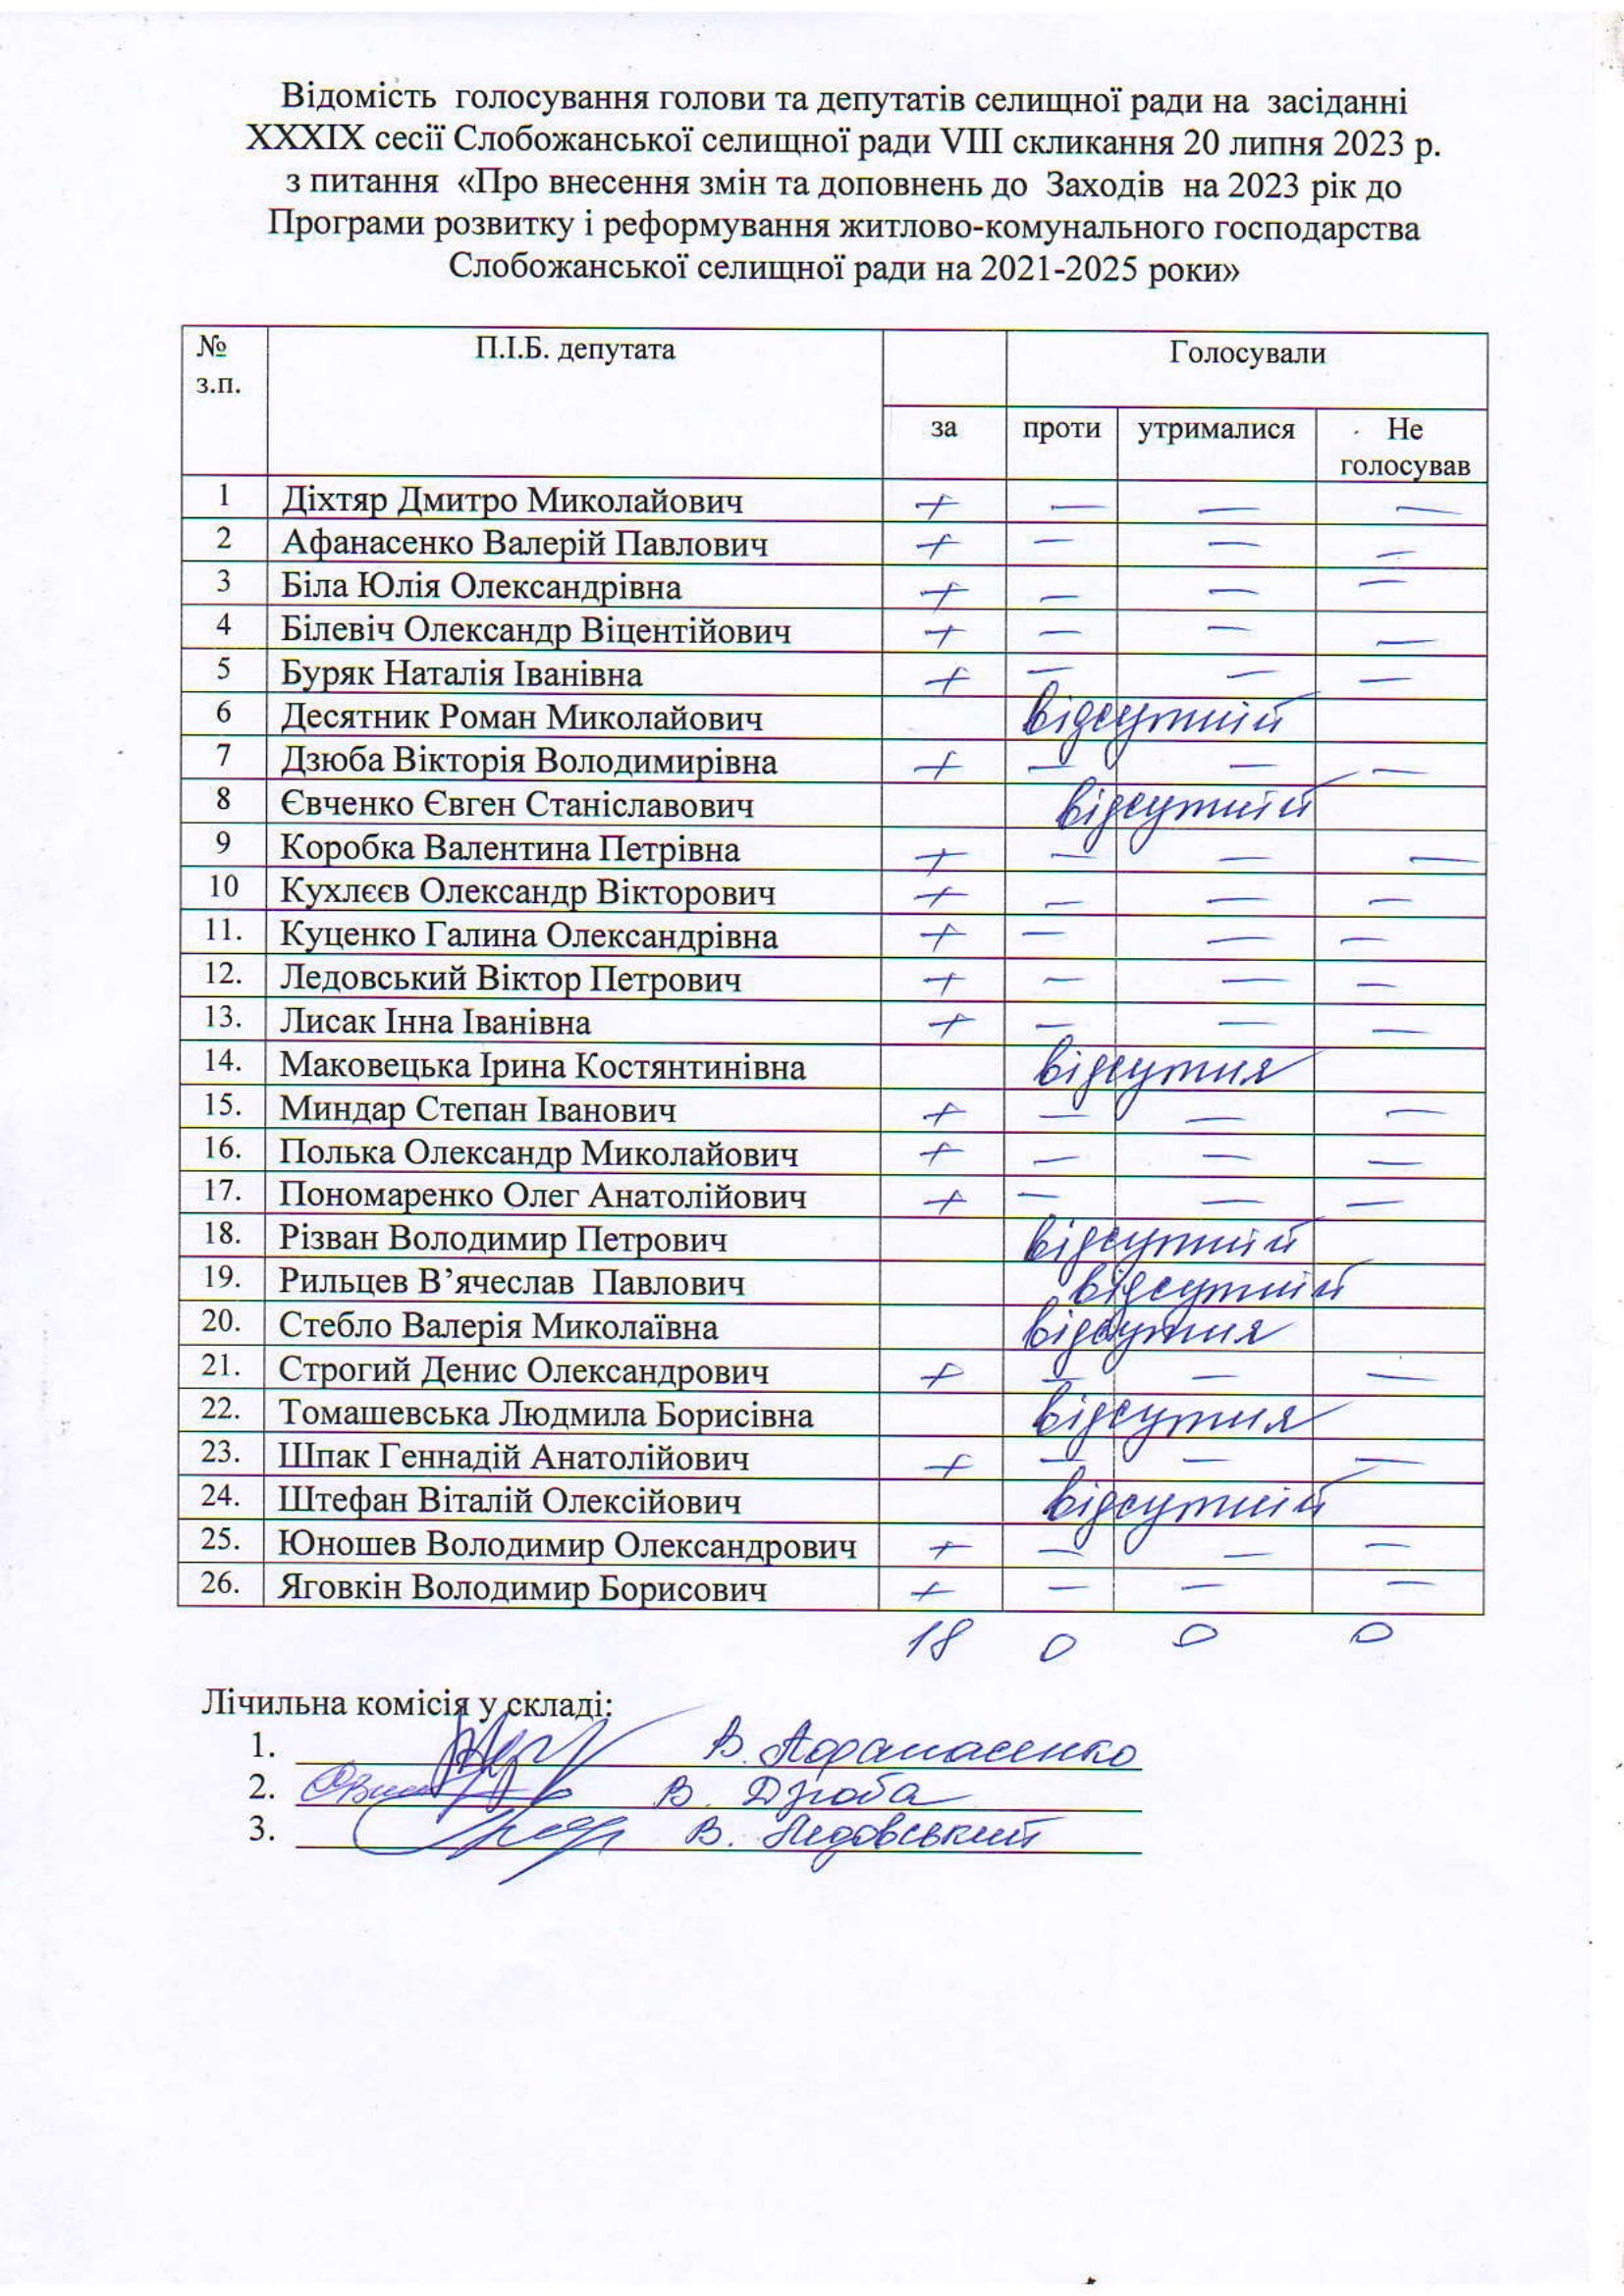 Відомість голосування голови та депутатів селищної ради на засіданні
XXXIX сесії Слобожанської селищної ради VIII скликання 20 липня 2023 р.
з питання «Про внесення змін та доповнень до Заходів на 2023 рік до
Програми розвитку і реформування житлово-комунального господарства
Слобожанської селищної ради на 2021-2025 роки»
№ з.п. П.І.Б. депутата Голосували
за проти утрималися Не голосував
1 Діхтяр Дмитро Миколайович + — — —
2 Афанасенко Валерій Павлович + — — —
3 Біла Юлія Олександрівна + — — —
4 Білевіч Олександр Віцентійович + — — —
5 Буряк Наталія Іванівна + — — —
6 Десятник Роман Миколайович відсутній
7 Дзюба Вікторія Володимирівна + — — —
8 Євченко Євген Станіславович відсутній
9 Коробка Валентина Петрівна + — — —
10 Кухлєєв Олександр Вікторович + — — —
11. Куценко Галина Олександрівна + — — —
12. Ледовський Віктор Петрович + — — —
13. Лисак Інна Іванівна + — — —
14. Маковецька Ірина Костянтинівна відсутня
15. Миндар Степан Іванович + — — —
16. Полька Олександр Миколайович + — — —
17. Пономаренко Олег Анатолійович + — — —
18. Різван Володимир Петрович відсутній
19. Рильцев В’ячеслав Павлович відсутній
20. Стебло Валерія Миколаївна відсутня
21. Строгий Денис Олександрович + — — —
22. Томашевська Людмила Борисівна відсутня
23. Шпак Геннадій Анатолійович + — — —
24. Штефан Віталій Олексійович відсутній
25. Юношев Володимир Олександрович + — — —
26. Яговкін Володимир Борисович + — — —
18 0 0 0
Лічильна комісія у складі:
1. В. Афанасенко
2. В. Дзюба
3. В. Ледовський